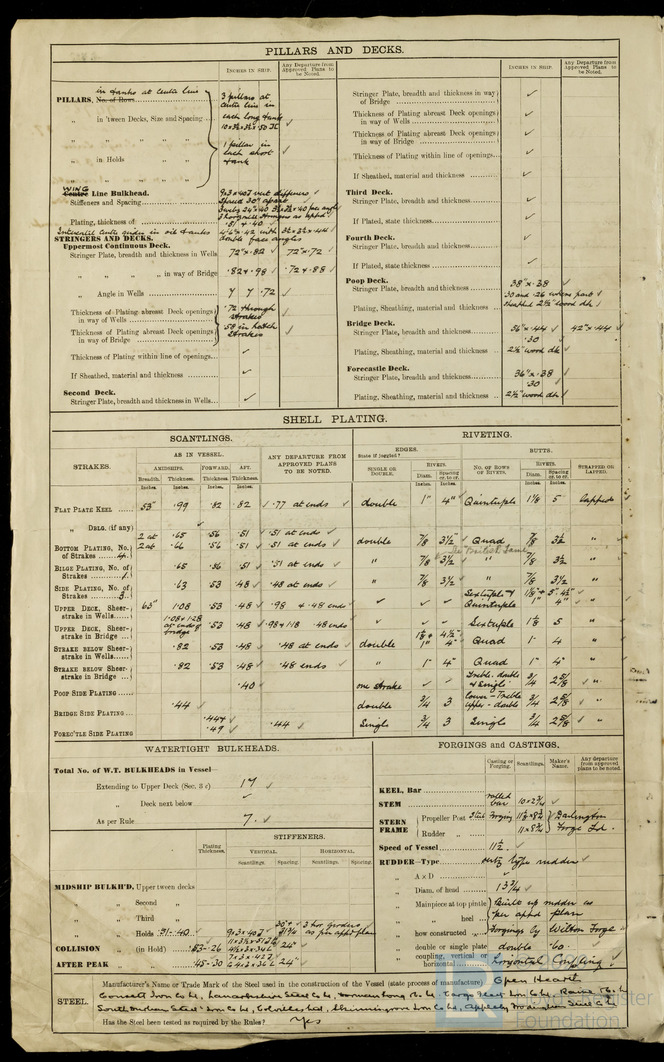 PILLARS AND DECKS.
INCHES IN SHIP. Any Departure from Approved Plans to be Noted.
in tanks at centre line
PILLARS, No. of Rows
3 pillars at centre line in each long tank
„ in 'tween Decks, Size and Spacing
„ in Holds
1 pillar in each short tank
WING
Centre Line Bulkhead.
Stiffeners and Spacing
Spaced 30" apart
Plating, thickness of
.51 & .40
double face angles
STRINGERS AND DECKS.
Uppermost Continuous Deck.
Stringer Plate, breadth and thickness in Wells 72" x .82 ✓ 72" x .72 ✓
„ „ „ „ in way of Bridge .82 & .98 ✓ .72 & .88 ✓
„ Angle in Wells 7 7 .72 ✓
Thickness of Plating abreast Deck openings in way of Wells .72 through strakes ✓
Thickness of Plating abreast Deck openings in way of Bridge .58 in hatch strakes ✓
Thickness of Plating within line of openings ✓
If Sheathed, material and thickness ✓
Second Deck.
Stringer Plate, breadth and thickness in Wells ✓
INCHES IN SHIP. Any Departure from Approved Plans to be Noted.
Stringer Plate, breadth and thickness in way of Bridge ✓
Thickness of Plating abreast Deck openings in way of Wells ✓
Thickness of Plating abreast Deck openings in way of Bridge ✓
Thickness of Plating within line of openings ✓
If Sheathed, material and thickness ✓
Third Deck.
Stringer Plate, breadth and thickness ✓
If Plated, state thickness ✓
Fourth Deck.
Stringer Plate, breadth and thickness ✓
If Plated, state thickness ✓
Poop Deck.
Stringer Plate, breadth and thickness 38" x .38 ✓
Plating, Sheathing, material and thickness .30 and .26 where part sheathed 2½" wood dk ✓
Bridge Deck.
Stringer Plate, breadth and thickness 36" x .44 ✓ 42" x .44 ✓
Plating, Sheathing, material and thickness .30 2½" wood dk ✓
Forecastle Deck.
Stringer Plate, breadth and thickness 36" x .38
Plating, Sheathing, material and thickness .30 ✓ 2½" wood dk ✓
SHELL PLATING.
SCANTLINGS. RIVETING.
STRAKES. AS IN VESSEL. ANY DEPARTURE FROM APPROVED PLANS TO BE NOTED. EDGES. BUTTS.
State if joggled?
AMIDSHIPS. FORWARD. AFT. SINGLE OR DOUBLE. RIVETS. NO. OF ROWS OF RIVETS. RIVETS. STRAPPED OR LAPPED.
Breadth. Thickness. Thickness. Thickness. Diam. Spacing cr. to cr. Diam. Spacing cr. to cr.
Inches. Inches. Inches. Inches. Inches. Inches. Inches. Inches.
FLAT PLATE KEEL 53" .99 .82 .82 ✓ .77 at ends ✓ double 1" 4" ✓ Quintuple 1⅛ 5 Lapped ✓
„ DBLG. (if any) ✓
BOTTOM PLATING, No. of Strakes 4. 2 at .65 .56 .51 ✓ .51 at ends ✓
2 at .66 .56 .51 ✓ .51 at ends ✓ double ⅞ 3½ ✓ Quad ⅞ 3½ „
BILGE PLATING, No. of Strakes 1. .65 .56 .51 ✓ .51 at ends ✓ „ ⅞ 3½ ✓ „ ⅞ 3½ „
SIDE PLATING, No. of Strakes 3. .63 .53 .48 ✓ .48 at ends ✓ „ ⅞ 3½ ✓ „ ⅞ 3½ „
UPPER DECK, Sheerstrake in Wells 63" 1.08 .53 .48 ✓ .98 & .48 ends ✓ Sextuple & Quintuple
UPPER DECK, Sheerstrake in Bridge 1.08 & 1.28 at ends of bridge .53 .48 ✓ .98 & 1.18 .48 ends ✓ Sextuple 1⅛ 5 „
STRAKE BELOW Sheerstrake in Wells .82 .53 .48 ✓ .48 at ends ✓ double 1" 4" ✓ Quad 1" 4 „
STRAKE BELOW Sheerstrake in Bridge .82 .53 .48 ✓ .48 ends ✓ „ 1" 4" Quad 1" 4" „
POOP SIDE PLATING .40 ✓ one strake Treble, double & Single ¾ 2⅝ „
BRIDGE SIDE PLATING .44 ✓ double ¾ 3 lower - Treble upper - double ¾ 2⅝ „
FORE'C'TLE SIDE PLATING .44 ✓ .49 ✓ .44 ✓ Single ¾ 3 Single ¾ 2⅝ „
WATERTIGHT BULKHEADS.
Total No. of W.T. BULKHEADS in Vessel—
Extending to Upper Deck (Sec. 3 c) 17 ✓
„ Deck next below ✓
As per Rule 7. ✓
STIFFENERS.
Plating Thickness. VERTICAL. HORIZONTAL.
Scantlings. Spacing. Scantlings. Spacing.
MIDSHIP BULKH'D, Upper tween decks
„ „ Second „
„ „ Third „
„ „ Holds .31-.40 ✓ as per appd plan
COLLISION „ (in Hold) .53-.26 24" ✓
AFTER PEAK „ „ .45-.30 24" ✓
FORGINGS and CASTINGS.
Casting or Forging. Scantlings. Maker's Name. Any departure from approved plans to be noted.
KEEL, Bar ✓
STEM rolled bar 10 x 2¾ ✓
STERN FRAME Propeller Post Steel Forging Darlington Forge Ltd.
Rudder „ 11 x 8¾ ✓
Speed of Vessel 11½ ✓
RUDDER—Type type rudder ✓
„ A x D ✓
„ Diam. of head 13¾ ✓
„ Mainpiece at top pintle Built up rudder as per appd plan
„ „ heel
„ how constructed Forgings by Wilton Forge ✓
„ double or single plate double .60 ✓
„ coupling, vertical or horizontal Horizontal Coupling ✓
STEEL.
Manufacturer's Name or Trade Mark of the Steel used in the construction of the Vessel (state process of manufacture) Open Hearth
Consett Iron Co Ld, Lanarkshire Steel Co Ld, Dorman Long & Co Ld, Cargo Fleet Iron Co Ld, Raine & Co Ld
South Durham Steel & Iron Co Ld, Colvilles Ltd, Skinningrove Iron Co Ld, Appleby Frodingham Steel Co Ld
Has the Steel been tested as required by the Rules? Yes
Foundation